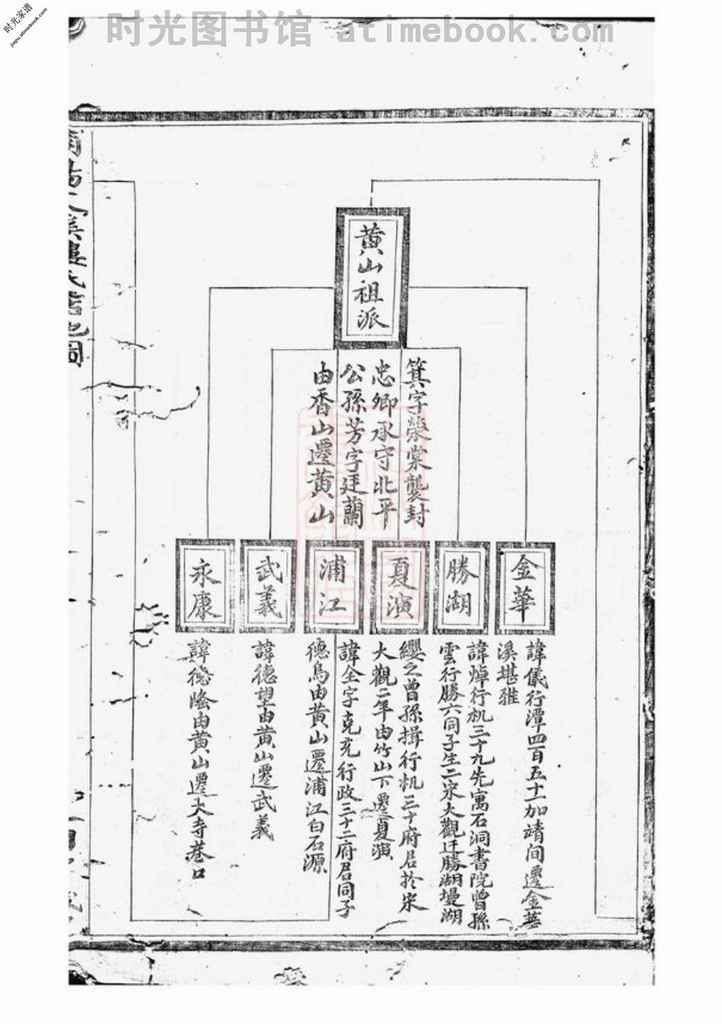 时光图书馆 atimebook.com
时光家谱
jiapu.atimebook.com
黄山祖派
箕字榮棠襲封
忠卿承守北平
公孫芳字廷蘭
由香山遷黄山
金華
諱儀行潭四百五十加靖間遷金華
溪堪雅
勝湖
諱焯行机三十九先寓石洞書院曾孫
雲行勝六同子生二宋大觀迁勝湖墁湖
夏演
纓之曾孫揖行机三十府君於宋
大觀二年由竹山下遷夏演
浦江
諱全字克充行政三十二府君同子
德鳥由黄山遷浦江白石源
武義
諱德望由黄山遷武義
永康
諱德隂由黄山遷大寺巷口